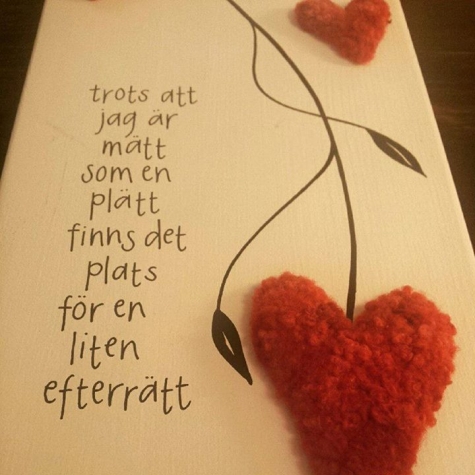 trots att
jag är
mätt
som en
plätt
finns det
plats
för en
liten
efterrätt